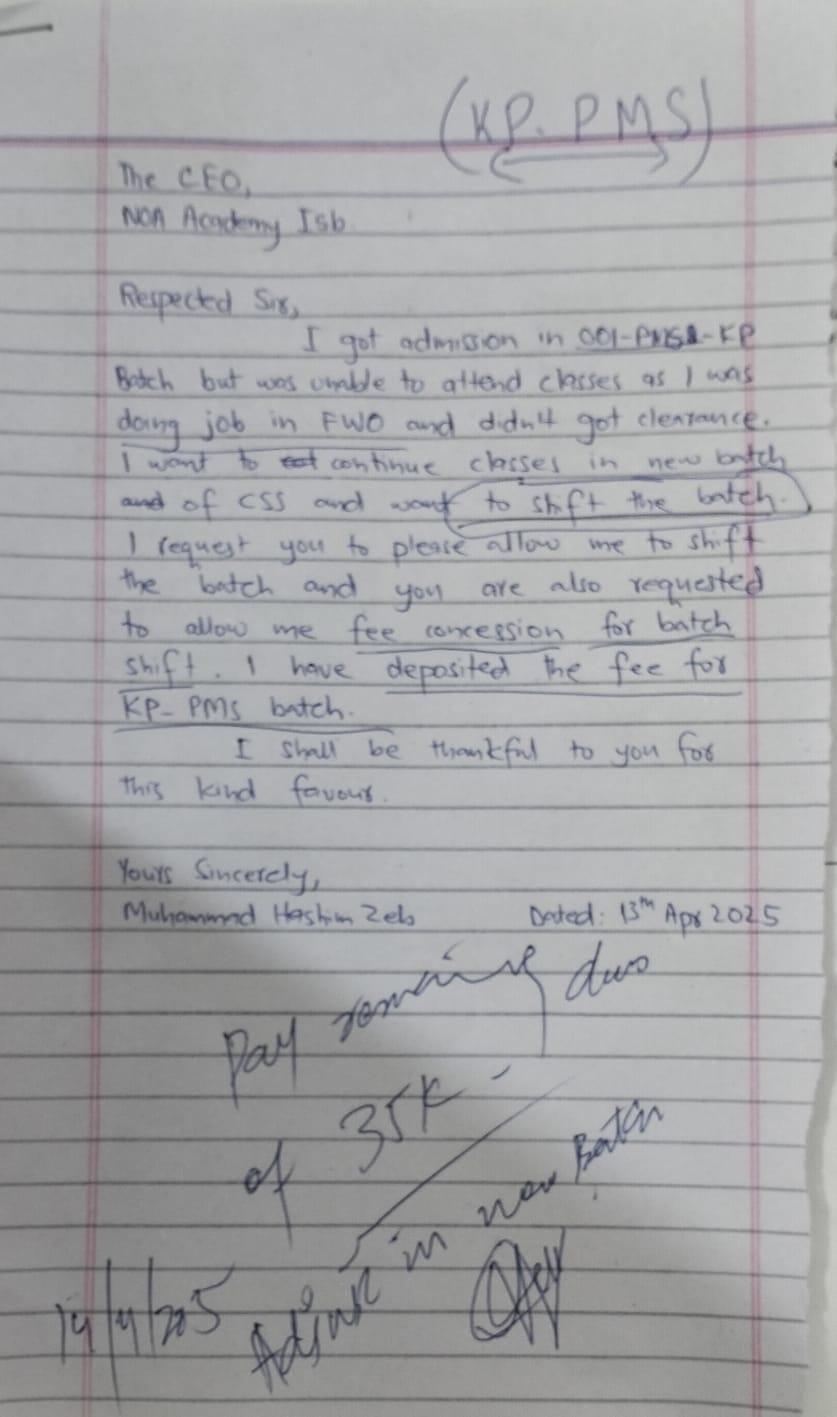 (KP. PMS)
The CEO,
NOA Academy Isb
Respected Sir,
I got admission in 001-PMS-KP
Batch but was unable to attend classes as I was
doing job in FWO and didn't got clearance.
I want to continue classes in new batch
and of CSS and want to shift the batch.
I request you to please allow me to shift
the batch and you are also requested
to allow me fee concession for batch
shift. I have deposited the fee for
KP- PMS batch.
I shall be thankful to you for
this kind favour.
Yours Sincerely,
Muhammad Hashim Zeb Dated: 13th Apr 2025
Pay remaing dues
of 35K -
Adjust in new Batch
14/4/205